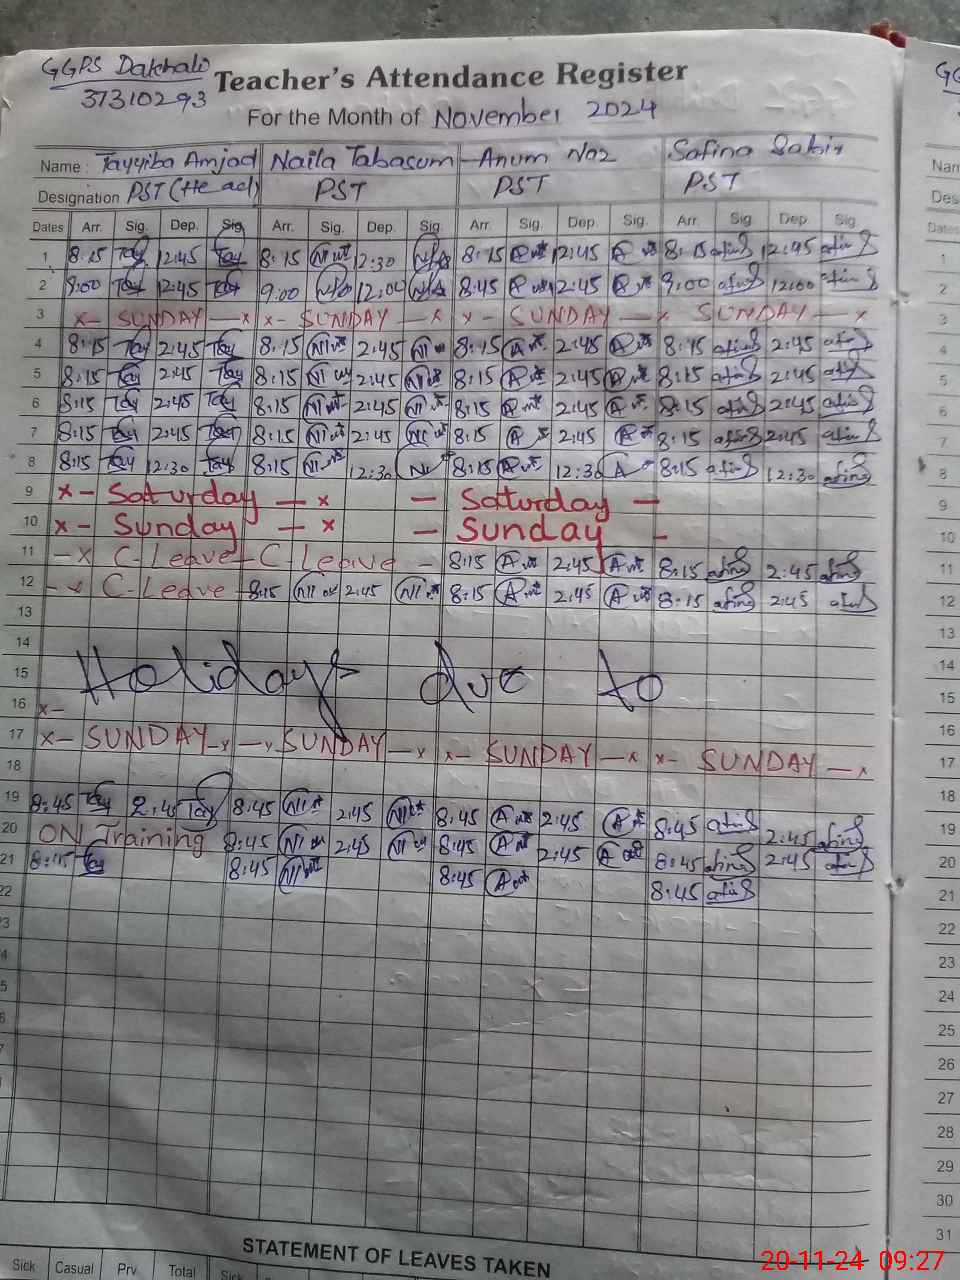 GGPS Dakhali Teacher's Attendance Register
37310293 For the Month of November 2024
Name : Tayyiba Amjad Naila Tabasum Anum Naz Safina Sabir
Designation PST (Head) PST PST PST
Dates Arr. Sig. Dep. Sig. Arr. Sig. Dep. Sig. Arr. Sig. Dep. Sig. Arr. Sig. Dep. Sig.
1 8:15 Tay 12:45 Tay 8:15 12:30 8:15 12:45 8:15 12:45 1
2 9:00 Tay 12:45 Tay 9:00 12:00 8:45 12:45 9:00 12:00 2
3 x- SUNDAY -x x- SUNDAY -x x- SUNDAY -x SUNDAY -x 3
4 8:15 Tay 2:45 Tay 8:15 2:45 8:15 2:45 8:15 2:45 4
5 8:15 Tay 2:45 Tay 8:15 2:45 8:15 2:45 8:15 2:45 5
6 8:15 Tay 2:45 Tay 8:15 2:45 8:15 2:45 8:15 2:45 6
7 8:15 Tay 2:45 Tay 8:15 2:45 8:15 2:45 8:15 2:45 7
8 8:15 Tay 12:30 Tay 8:15 12:30 8:15 12:30 8:15 12:30 8
9 x- Saturday -x - Saturday - 9
10 x- Sunday -x - Sunday - 10
11 -x C-Leave-C Leave - 8:15 2:45 8:15 2:45 11
12 -x C-Leave - 8:15 2:45 8:15 2:45 8:15 2:45 12
13 13
14 14
15 Holidays due to 15
16 x- 16
17 x- SUNDAY -x -x SUNDAY -x x- SUNDAY -x x- SUNDAY -x 17
18 18
19 8:45 Tay 2:45 Tay 8:45 2:45 8:45 2:45 8:45 2:45 19
20 ON Training 8:45 2:45 8:45 2:45 8:45 2:45 20
21 8:15 Tay 8:45 8:45 8:45 21
22 22
23 23
24 24
25 25
26 26
27 27
28 28
29 29
30 30
31 31
STATEMENT OF LEAVES TAKEN
Sick Casual Prv Total Sick
20-11-24 09:27